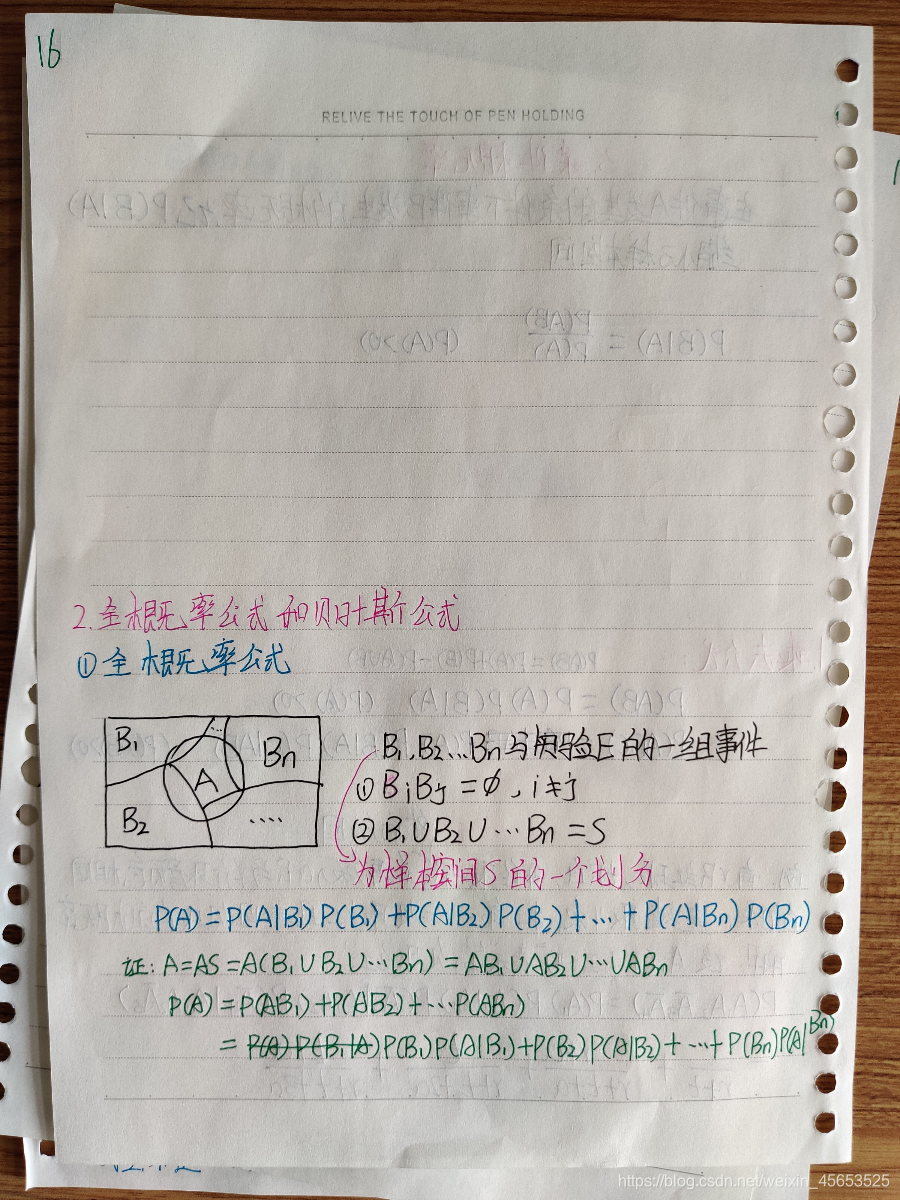 16
RELIVE THE TOUCH OF PEN HOLDING
2.全概率公式和贝叶斯公式
①全概率公式
B₁
Bn
A
B₂
....
B₁,B₂…Bn为试验E的一组事件
①BiBj=∅,i≠j
②B₁∪B₂∪…Bn=S
为样本空间S的一个划分
P(A)=P(A|B₁)P(B₁)+P(A|B₂)P(B₂)+…+P(A|Bn)P(Bn)
证:A=AS=A(B₁∪B₂∪…Bn)=AB₁∪AB₂∪…∪ABn
P(A)=P(AB₁)+P(AB₂)+…P(ABn)
=P(A)P(B₁|A)P(B₁)P(A|B₁)+P(B₂)P(A|B₂)+…+P(Bn)P(A|Bn)
https://blog.csdn.net/weixin_45653525